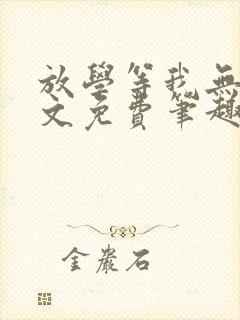 放學等我無
文免費筆趣
金巖石